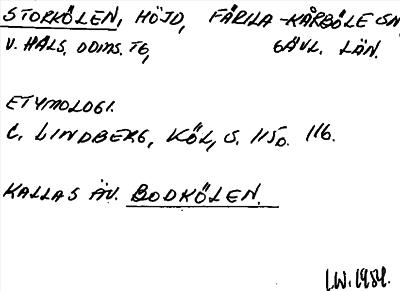 STORKÖLEN, HÖJD, FÄRILA-KÅRBÖLE SN,
V. HÄLS. DOMS. TG, GÄVL. LÄN.
ETYMOLOGI.
C. LINDBERG, KÖL, S. 115o. 116.
KALLAS ÄV. BODKÖLEN.
I.W. 1984.